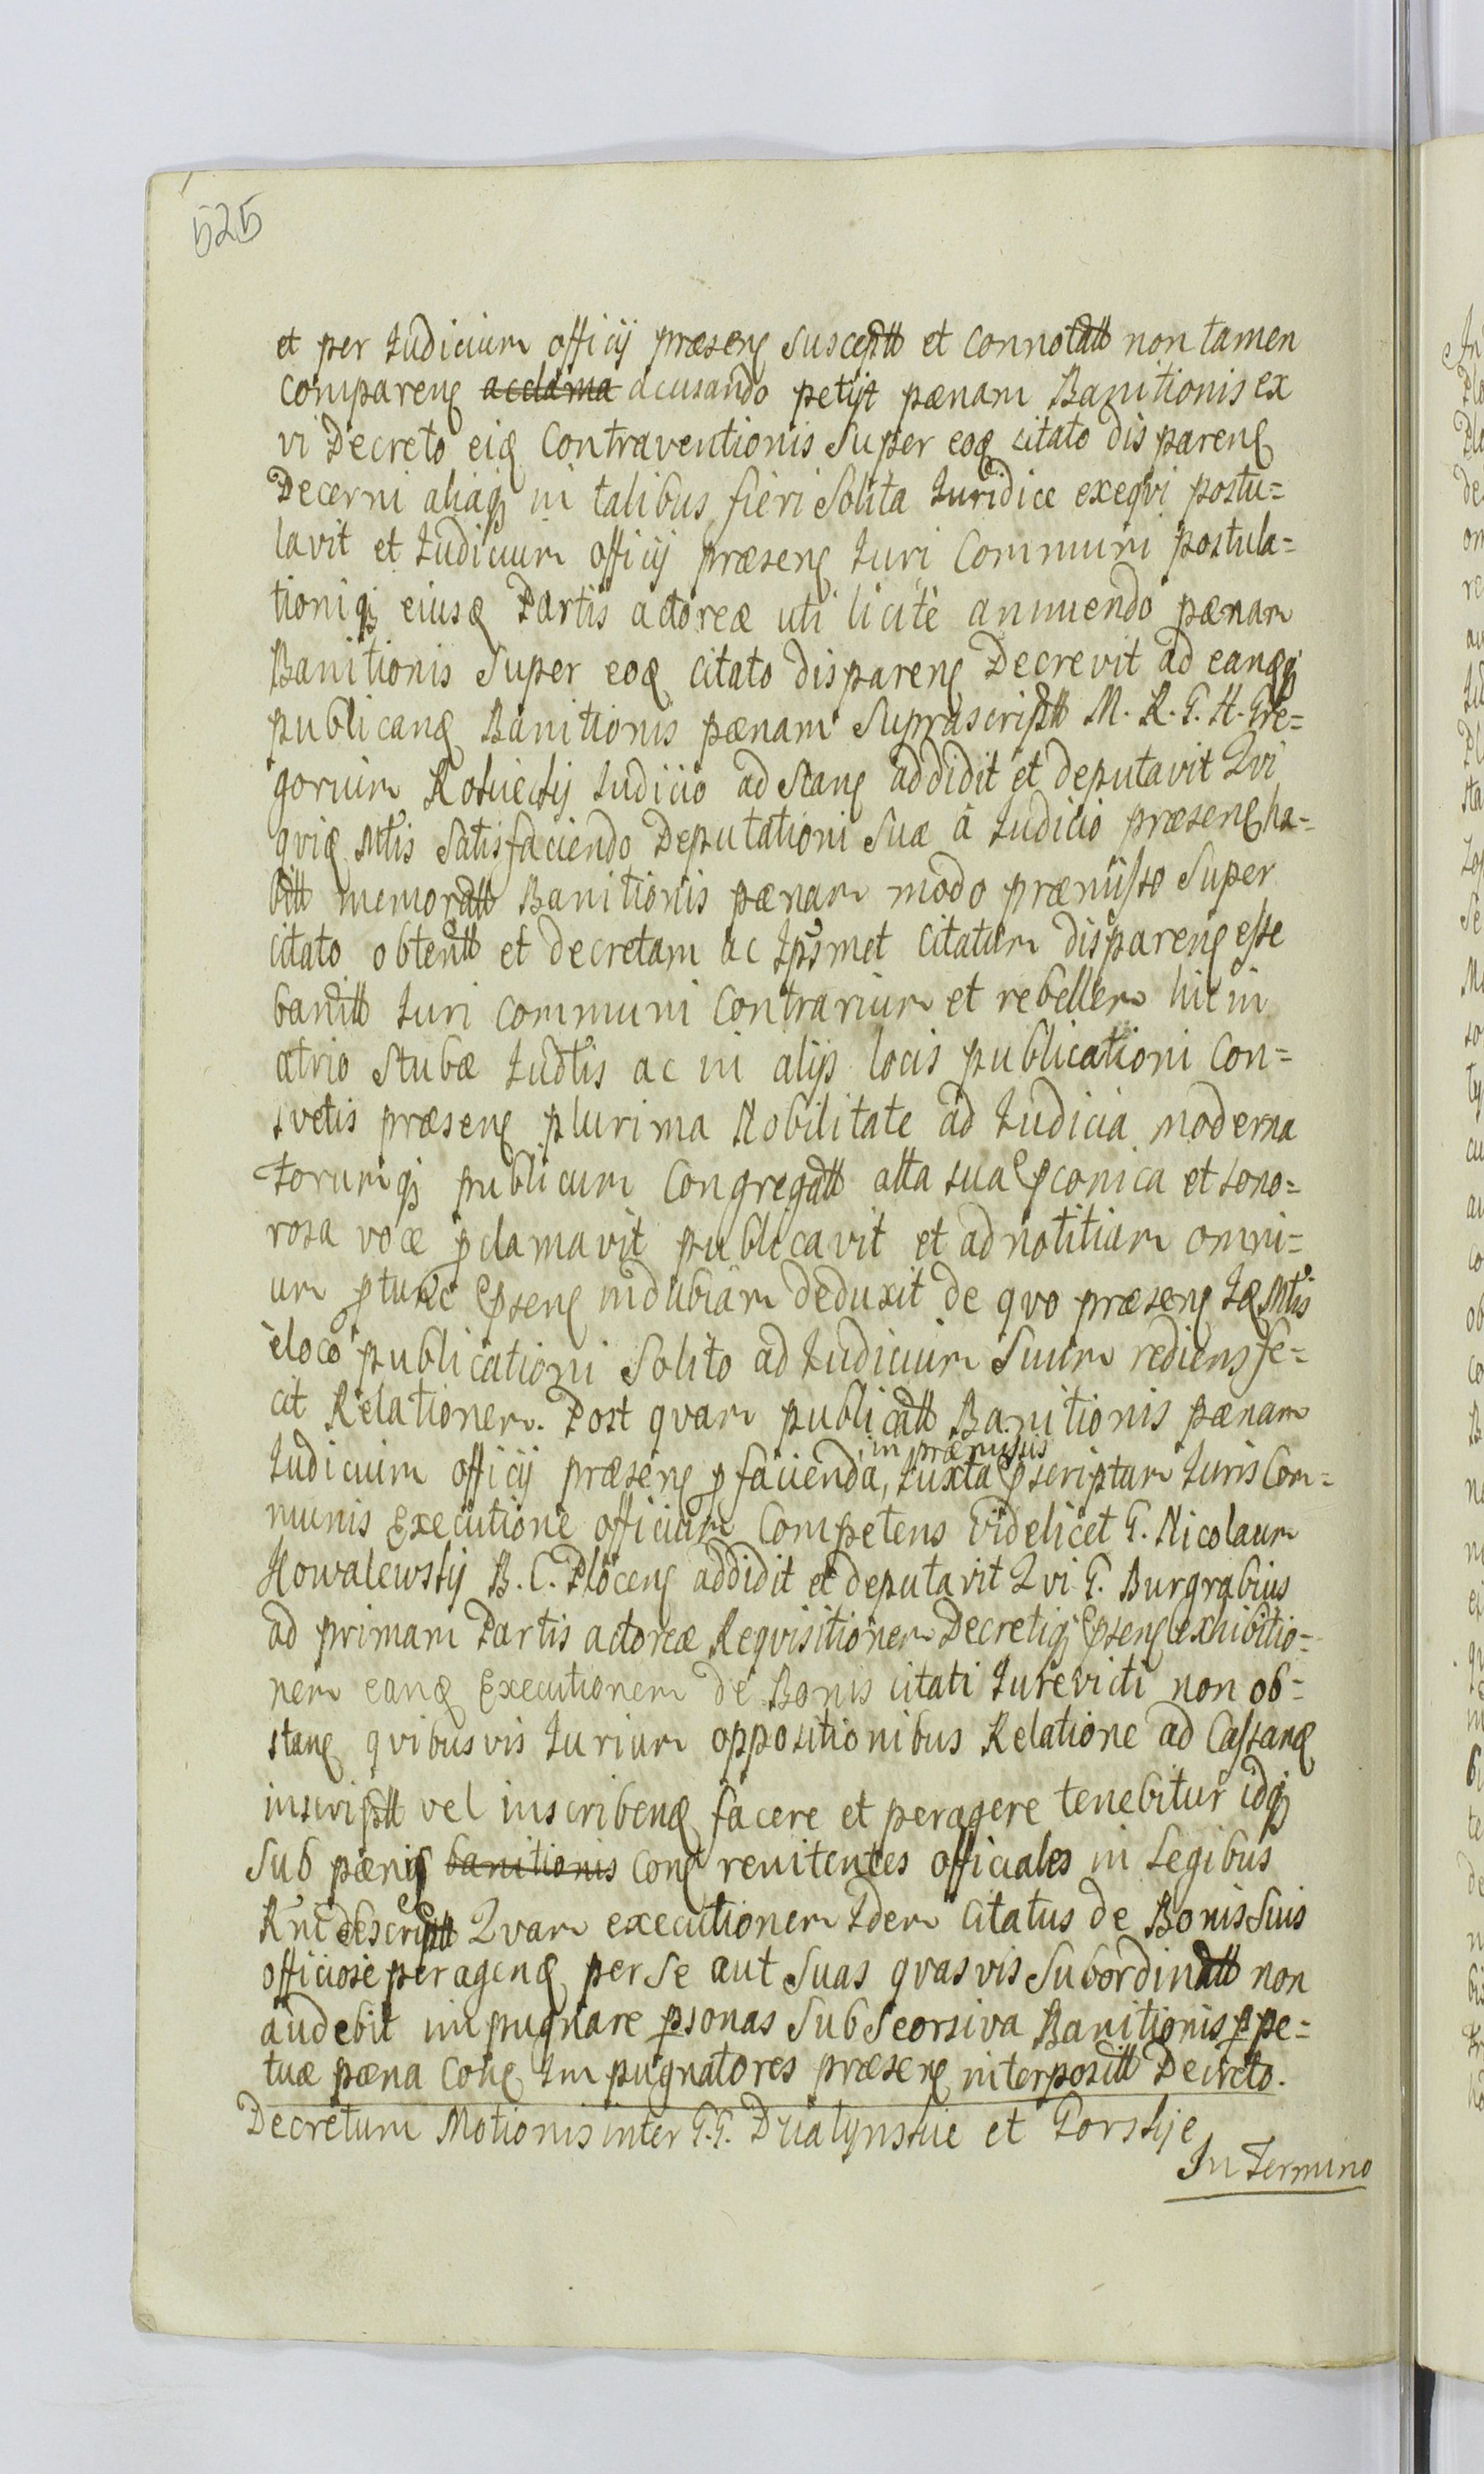 525
et per Iudicium officij præsenꝭ susceptt et connotatt non tamen
comparenꝭ acclama acusando petijt pænam Banitionis ex
vi Decreto eiꝗ Contraventionis Super eoꝗ citato disparenꝭ
Decerni aliaqꝫ in talibus fieri Solita Iuridice exeqvi postu=
lavit et Iudicium officij præsenꝭ Iuri Communi postula=
tioniqꝫ eiusꝗ Partis actoreæ uti licite annuendo pænam
Banitionis Super eoꝗ citato disparenꝭ Decrevit ad eanꝗqꝫ
publicanꝗ Banitionis pænam Suprascriptt M. R. G. H. Gre=
gorium Iudicio ad Stanꝭ addidit et deputavit Qvi
qviꝗ Mtis Satisfaciendo Deputationi Suæ à Iudicio præsenꝭ ha=
bitt memoratt Banitionis pænam modo præmisso Super
citato obtentt et decretam ac Ipsmet citatum disparenꝭ esse
banitt Iuri communi Contrarium et rebellem hic in
atrio Stubæ Iudtis ac in alijs locis publicationi Con=
svetis præsenꝭ plurima Nobilitate ad Iudicia moderna
Forumqꝫ publicum Congregatt alta sua ꝑconica et sono=
rosa voce ꝓclamavit publicavit et ad notitiam omni=
um ꝓtunc ꝑsenꝭ indubiam deduxit de qvo præsenꝭ Iꝗ Mtis
è loco publicationi Solito ad Iudicium Suum rediens fe=
cit Relationem. Post qvam publicatt Banitionis pænam
in præmissis
Iudicium officij præsenꝭ ꝓ facienda, Iuxta ꝑscriptum Iuris Com=
munis Executione officium Competens Videlicet G. Nicolaum
Kowalewskij B. C. Plocenꝭ addidit et deputavit Qvi G. Burgrabius
ad primam Partis actoreæ Reqvisitionem Decretiqꝫ ꝑsenꝭ exhibitio=
nem eanꝗ Executionem de Bonis citati Iurevicti non ob=
stanꝭ qvibusvis Iurium oppositionibus Relatione ad Cassanꝗ
inscriptt vel inscribenꝗ facere et peragere tenebitur idqꝫ
Sub pænis banitionis conꝭ renitentes officiales in Legibus
Rni descriptt Qvam executionem Idem Citatus de Bonis Suis
officiose peragenꝗ per Se aut Suas qvasvis Subordinatt non
audebit impugnare ꝑsonas Sub Seorsiva Banitionis ꝑpe=
tuæ pæna Conꝭ Impugnatores præsenꝭ interpositt Decreto.
Decretum Motionis inter G.G. Dzialynskie et Gorskije
In Termino